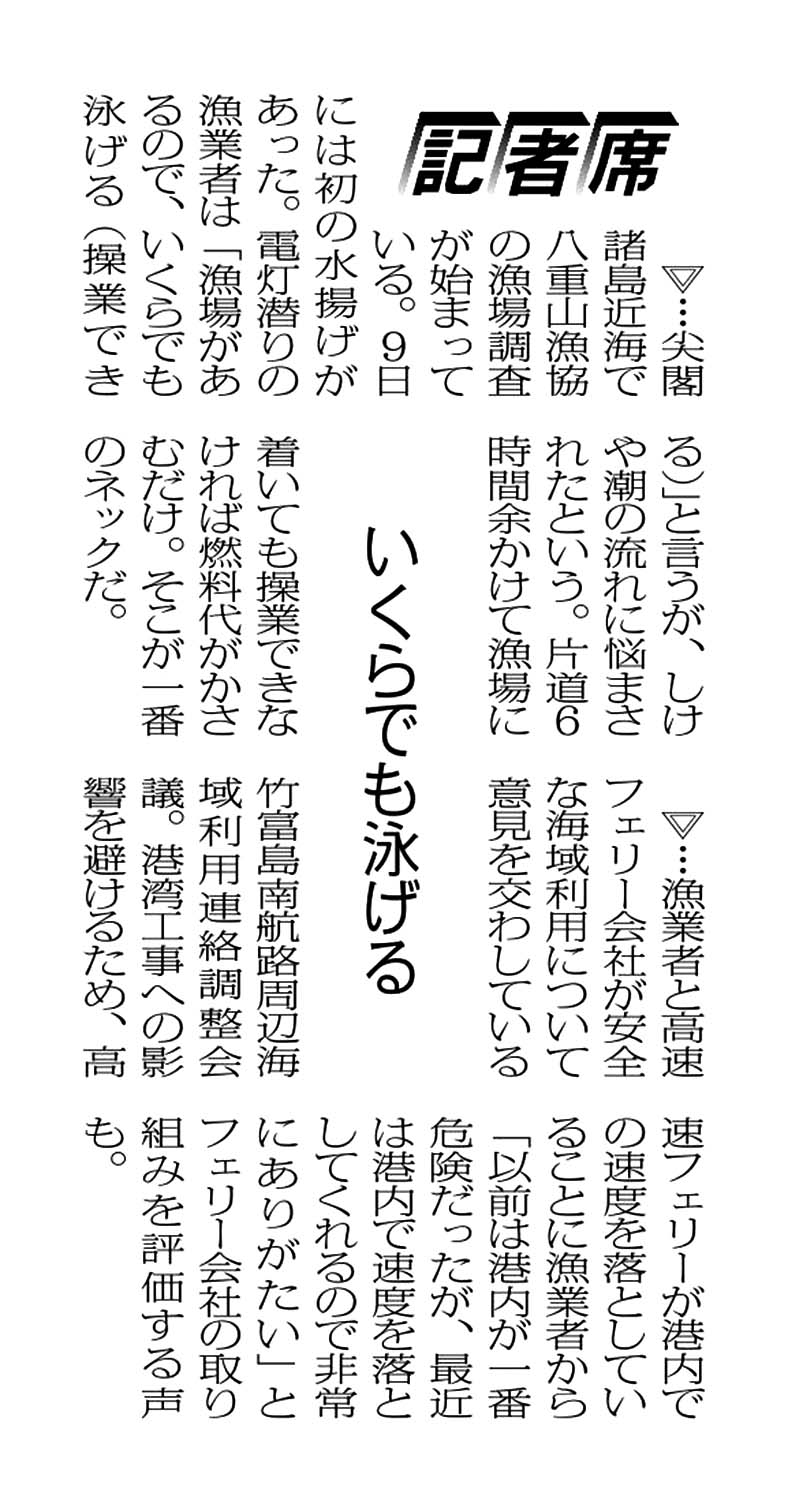 記者席
▽…尖閣
諸島近海で
八重山漁協
の漁場調査
が始まって
いる。9日
には初の水揚げが
あった。電灯潜りの
漁業者は「漁場があ
るので、いくらでも
泳げる(操業でき
る)」と言うが、しけ
や潮の流れに悩まさ
れたという。片道6
時間余かけて漁場に
いくらでも泳げる
着いても操業できな
ければ燃料代がかさ
むだけ。そこが一番
のネックだ。
▽…漁業者と高速
フェリー会社が安全
な海域利用について
意見を交わしている
竹富島南航路周辺海
域利用連絡調整会
議。港湾工事への影
響を避けるため、高
速フェリーが港内で
の速度を落としてい
ることに漁業者から
「以前は港内が一番
危険だったが、最近
は港内で速度を落と
してくれるので非常
にありがたい」と
フェリー会社の取り
組みを評価する声
も。